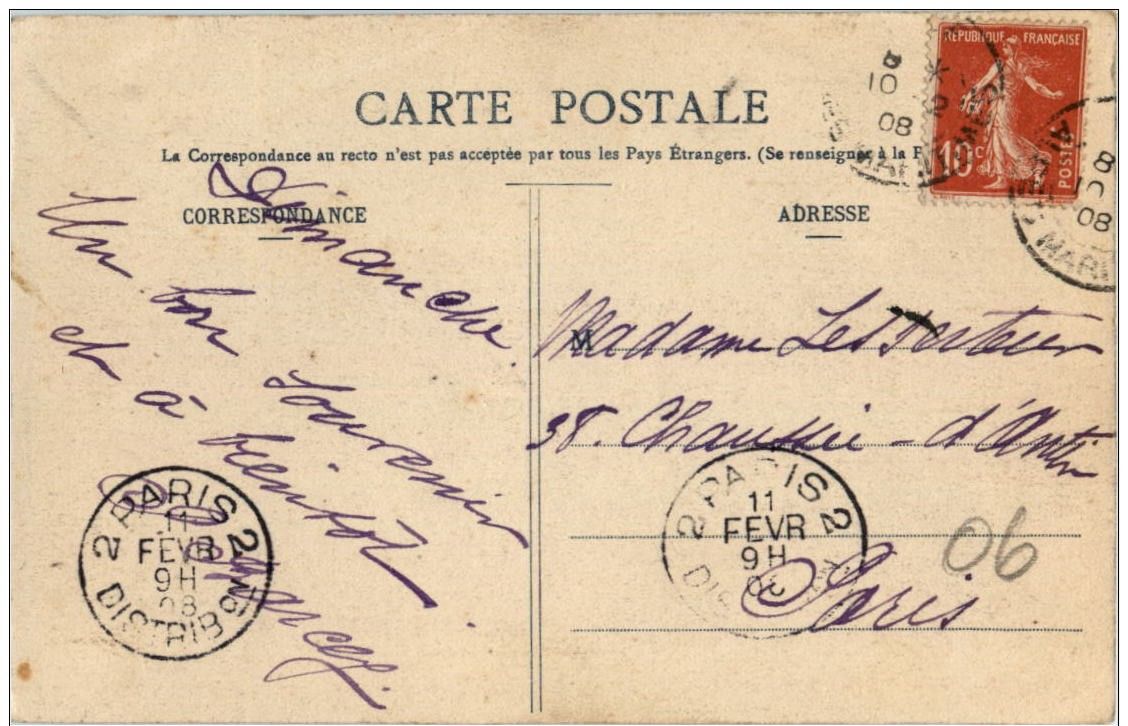 RÉPUBLIQUE FRANÇAISE
10 c
POSTES
CARTE POSTALE
La Correspondance au recto n'est pas acceptée par tous les Pays Étrangers. (Se renseigner à la
CORRESPONDANCE
ADRESSE
Dimanche.
Un bon souvenir
et à bientôt
M
Madame
38. Chaussée-d'Antin
Paris
PARIS 2
11
FEVR
9H
08
DISTRIB
PARIS 2
11
FEVR
9H
10
08
8
10
08
06